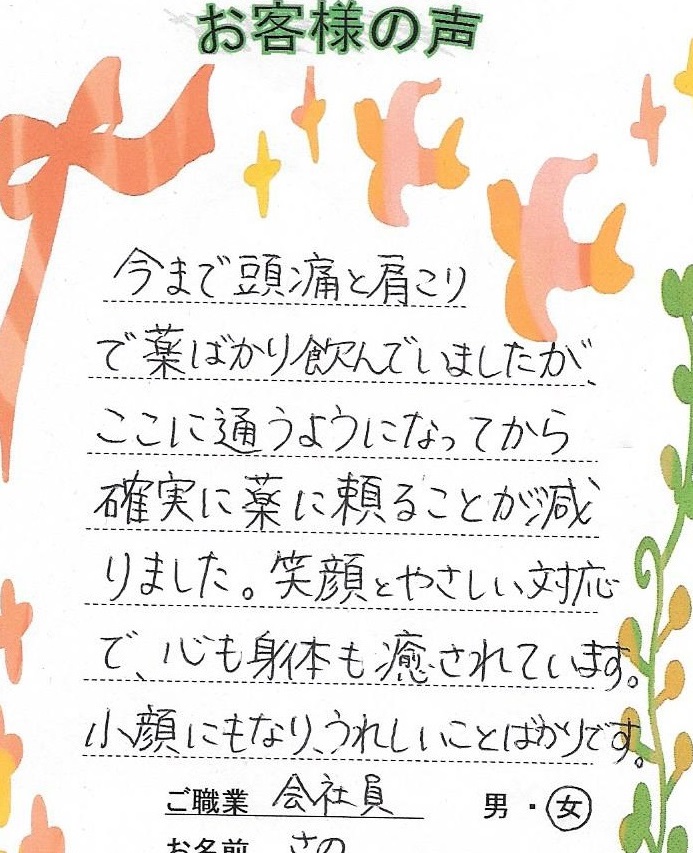 お客様の声
今まで頭痛と肩こり
で薬ばかり飲んでいましたが、
ここに通うようになってから
確実に薬に頼ることが減
りました。笑顔とやさしい対応
で、心も身体も癒されています。
小顔にもなり、うれしいことばかりです。
ご職業 会社員 男・女
お名前 さの